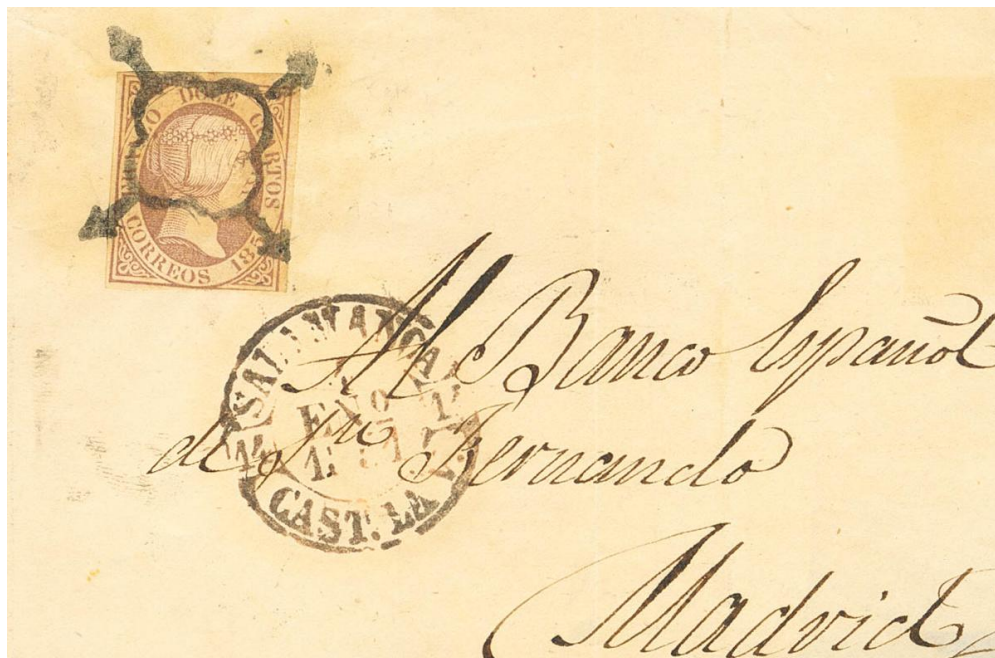 DOCE CUARTOS
CORREOS 185
SALAMANCA
ENO
CAST. LA V.
Al Banco Español
de Sn Fernando
Madrid